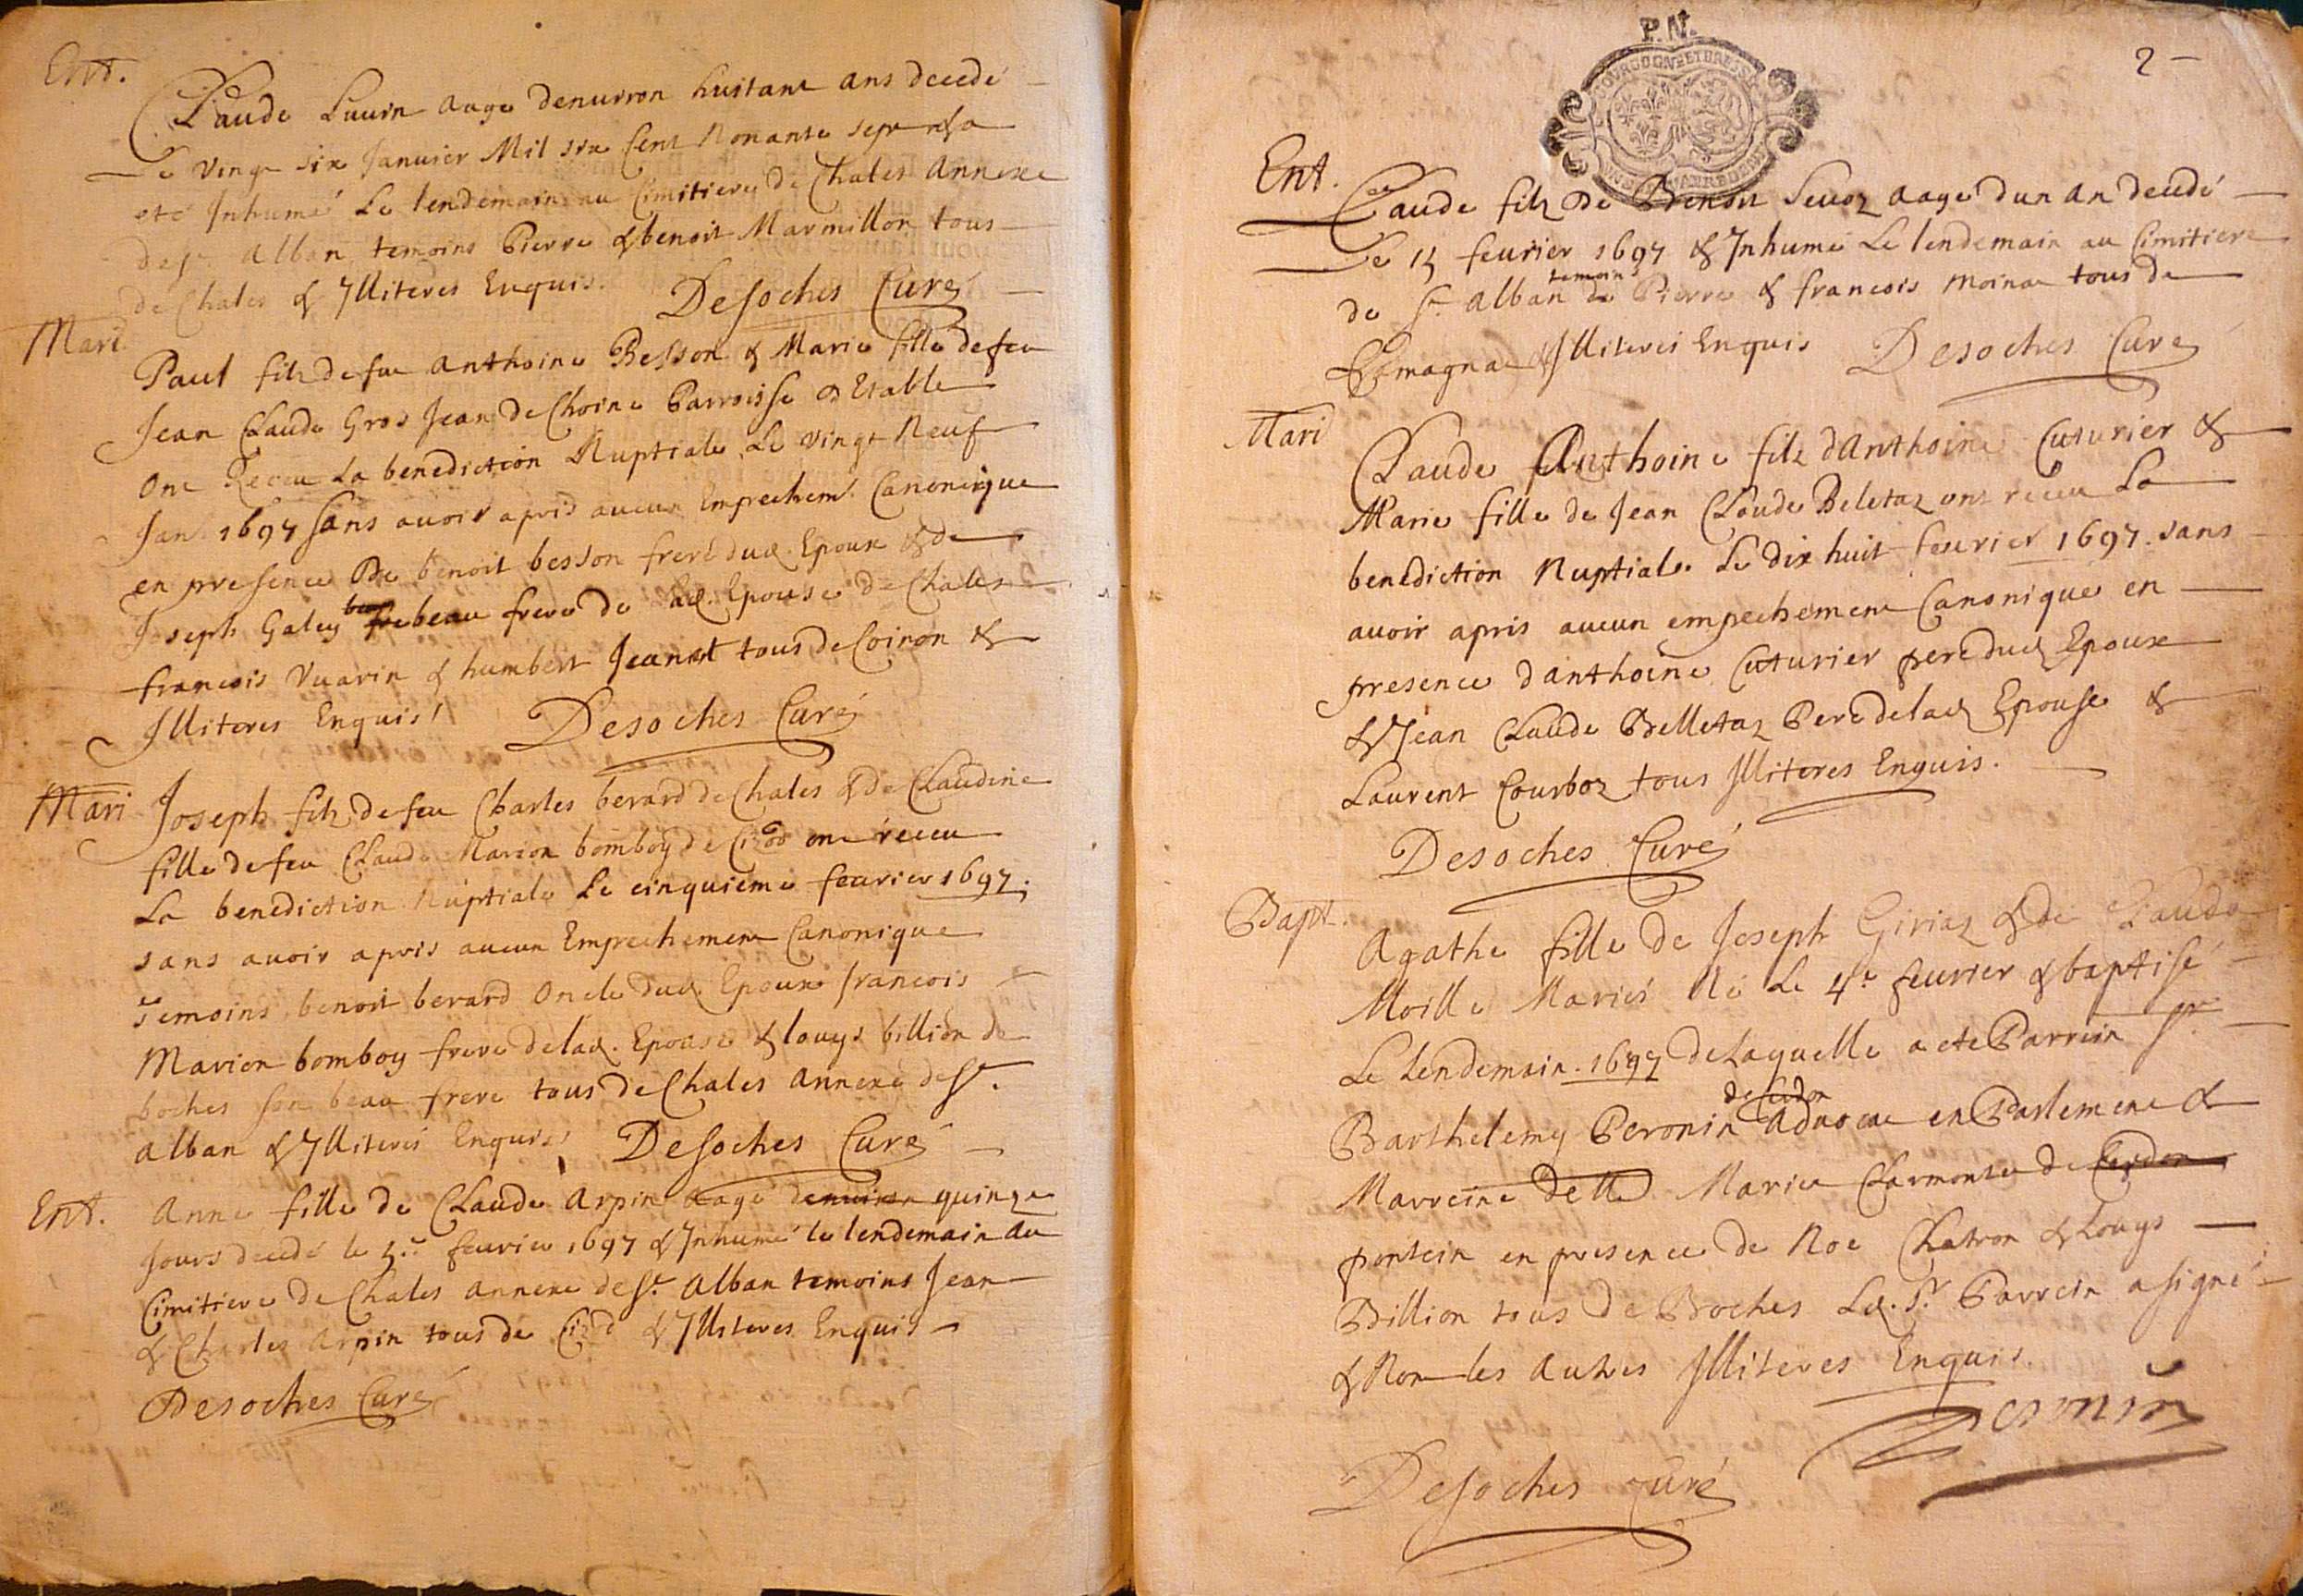 Ent.
Claude Livurin aage denuiron huitant ans decedé
Le vingt six Januier Mil six Cent Nonante sept & a
eté Inhumé Le lendemain au Cimitiere de Chales Annexe
de St. Alban temoins Pierre & benoit Marmillon tous
de Chales & Illiteres Enquis. Desoches Curé
Mari
Paul filz de feu Anthoine Besson & Marie fille de feu
Jean Claude Gros Jean de Choine Parroisse d Etable
Ont Receu La benediction Nuptiale Le vingt Neuf
Jan. 1697 sans auoir apris aucun Empechemt. Canonique
en presence De benoit besson frere dud. Epoux & de
Joseph Galey beau frere de lad. Epouse de Chales
francois Vuarin & humbert Jeanet tous de Coiron &
Illiteres Enquis Desoches Curé
Mari
Joseph filz de feu Charles berard de Chales & de Claudine
fille de feu Claude Marion bomboy de Cizod ont receu
La benediction Nuptiale Le cinquieme feurier 1697.
sans auoir apris aucun Empechement Canonique
Temoins benoit berard Oncle dud. Epoux francois
Marion bomboy frere de lad. Epouse & louys billion de
boches son beau frere tous de Chales Annexe de St.
Alban & Illiteres Enquis Desoches Curé
Ent.
Anne fille de Claude Arpin aage denuiron quinze
Jours decedé le 5e. feurier 1697 & Inhumé le lendemain au
Cimitiere de Chales annexe de St. Alban temoins Jean
& Charles Arpin tous de Cizod & Illiteres Enquis
Desoches Curé
P. Nt.
2
BOURGOGNE ET BRESSE
Ent.
Claude filz De Benoit Seuoz aage dun An decedé
Le 15 feurier 1697 & Inhumé Le lendemain au Cimitiere
temoins
de St. Alban de Pierre & francois Moinat tous de
& Illiteres Enquis Desoches Curé
Mari
Claude Anthoine filz dAnthoine Cuturier &
Marie fille de Jean Claude Beletaz ont receu La
benediction Nuptiale Le dix huit feurier 1697. sans
auoir apris aucun empechement Canonique en
presence danthoine Cuturier pere dud Epoux
& Jean Claude Belletaz Pere de lad Epouse &
Laurent Courboz tous Illiteres Enquis.
Desoches Curé
Bapt.
Agathe fille de Joseph Giriaz & de Claude
Moille Mariés Né Le 4e feurier & baptisé
Le Lendemain. 1697 de Laquelle a eté Parrein Sr.
de Cerdon
Barthelemy Peronin Aduocat en Parlement &
Marreine Delle Marie Charmonte de Cerdon
pontein en presence de Noe Chatron & Louys
Billion tous de Boches Led. Sr. Parrein a signé
& Non les Autres Illiteres Enquis.
Desoches Curé